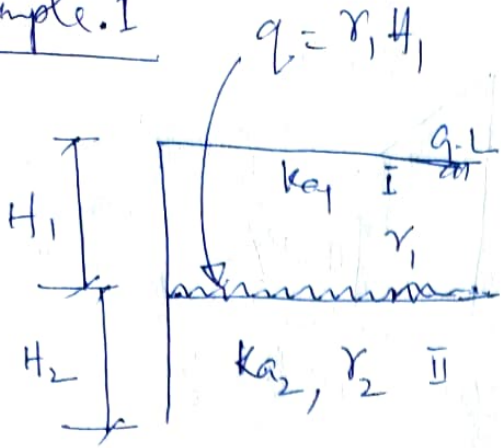 mple.1
q = γ₁ H₁
G.L
Ka₁ I
H₁
γ₁
H₂
Ka₂, γ₂ II